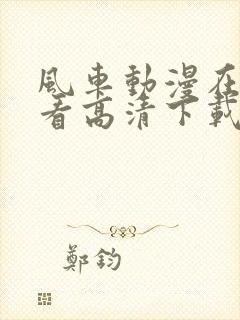 風車動漫在
看高清下載
鄭鈞